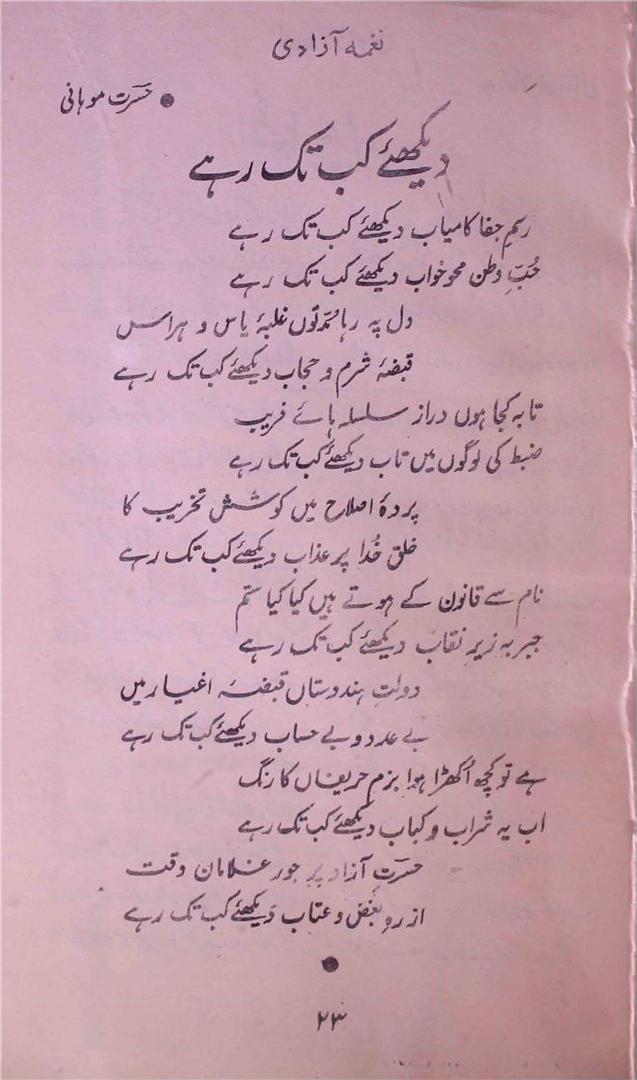 نغمہ آزادی
● حسرت موہانی
دیکھئے کب تک رہے
رسمِ جفا کامیاب دیکھئے کب تک رہے
حُبِّ وطن محوِ خواب دیکھئے کب تک رہے
دل پہ رہا مُدّتوں غلبۂ یاس و ہراس
قبضۂ شرم و حجاب دیکھئے کب تک رہے
تا بہ کجا ہوں دراز سلسلہ ہائے فریب
ضبط کی لوگوں میں تاب دیکھئے کب تک رہے
پردۂ اصلاح میں کوشش تخریب کا
خلقِ خُدا پر عذاب دیکھئے کب تک رہے
نام سے قانون کے ہوتے ہیں کیا کیا ستم
جبر بہ زیرِ نقاب دیکھئے کب تک رہے
دولتِ ہندوستاں قبضۂ اغیار میں
بے عدد و بے حساب دیکھئے کب تک رہے
ہے تو کچھ اُکھڑا ہوا بزم حریفاں کا رنگ
اب یہ شراب و کباب دیکھئے کب تک رہے
حسرتِ آزاد پر جور غلامان وقت
از رہِ بغض و عتاب دیکھئے کب تک رہے
●
۲۳